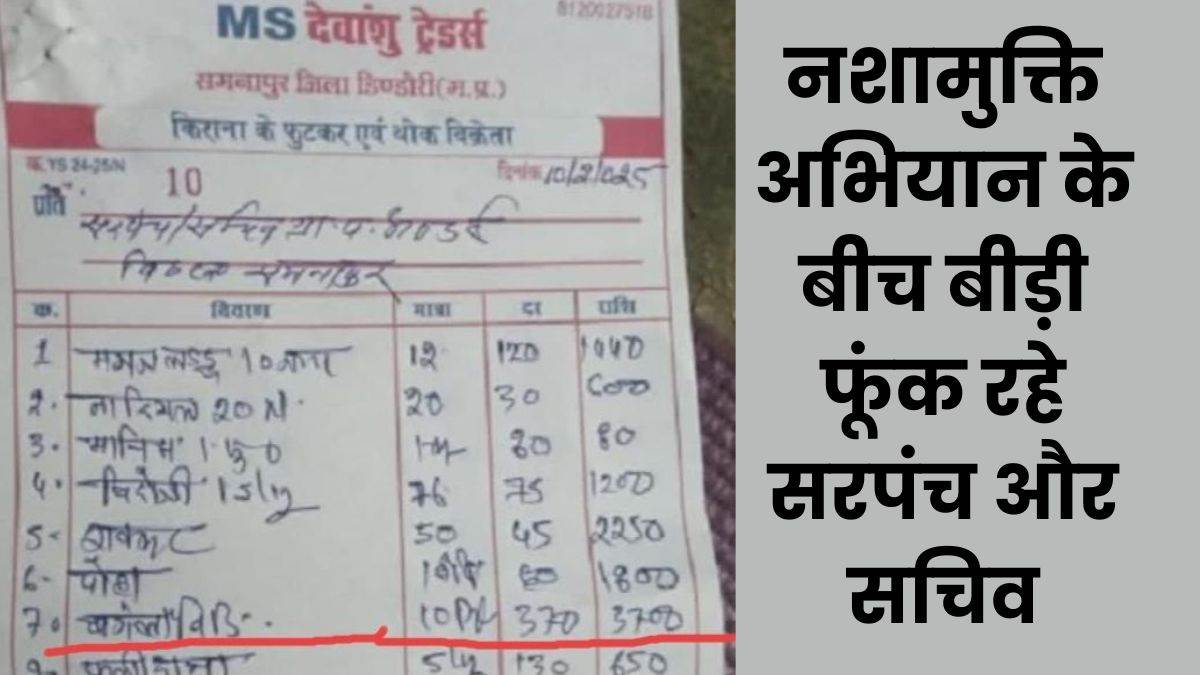 8120027518
MS देवांशु ट्रेडर्स
समनापुर जिला डिण्डौरी(म.प्र.)
किराना के फुटकर एवं थोक विक्रेता
क्र. YS 24-25/N
10
दिनांक 10/2/2025
प्रति
सरपंच/सचिव ग्रा.प.
समनापुर
क्र. विवरण मात्रा दर राशि
1 मगज लड्डू 10 12 120 1040
2. नारियल 20 N. 20 30 600
3. माचिस 1 80 80
4. चिरोंजी 75 1200
5- 50 45 2250
6- पोहा 60 1800
7. बिड़ि 10 370 3700
फल्लीदाना 5 130 650
नशामुक्ति
अभियान के
बीच बीड़ी
फूंक रहे
सरपंच और
सचिव